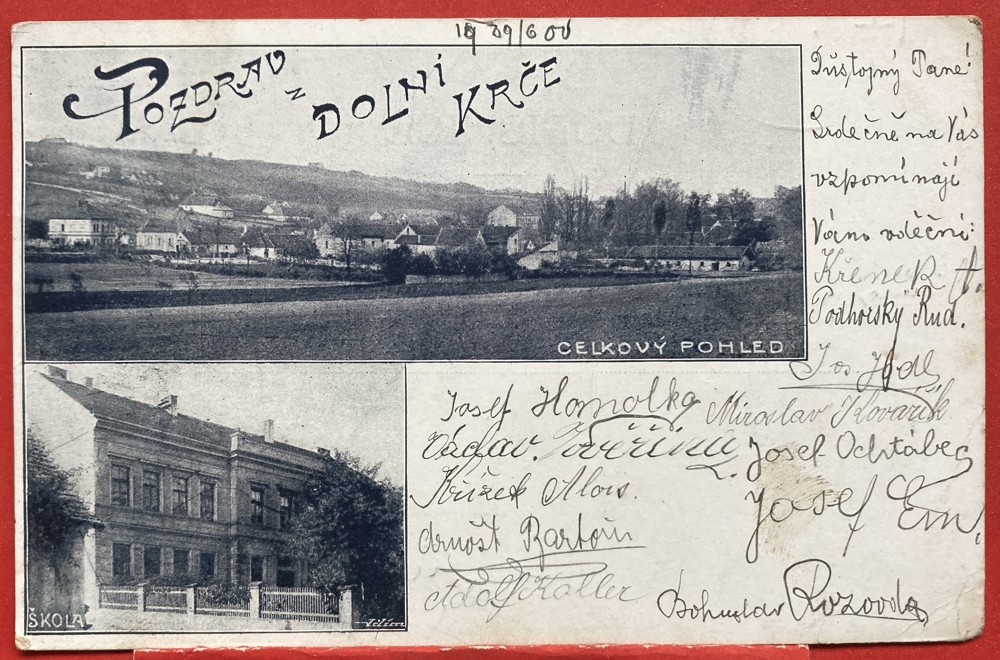 19 29/6 00
POZDRAV z DOLNÍ KRČE
CELKOVÝ POHLED
ŠKOLA
Důstojný Pane!
Srdečně na Vás
vzpomínají
Vám vděční:
Křenek A.
Podhorský Rud.
Jos. Jodl
Josef Homolka
Miroslav Kovařík
Václav
Josef Ochtábec
Křížek Alois.
Josef
Arnošt Bartoň
Adolf Kaller
Bohuslav Rozvoda